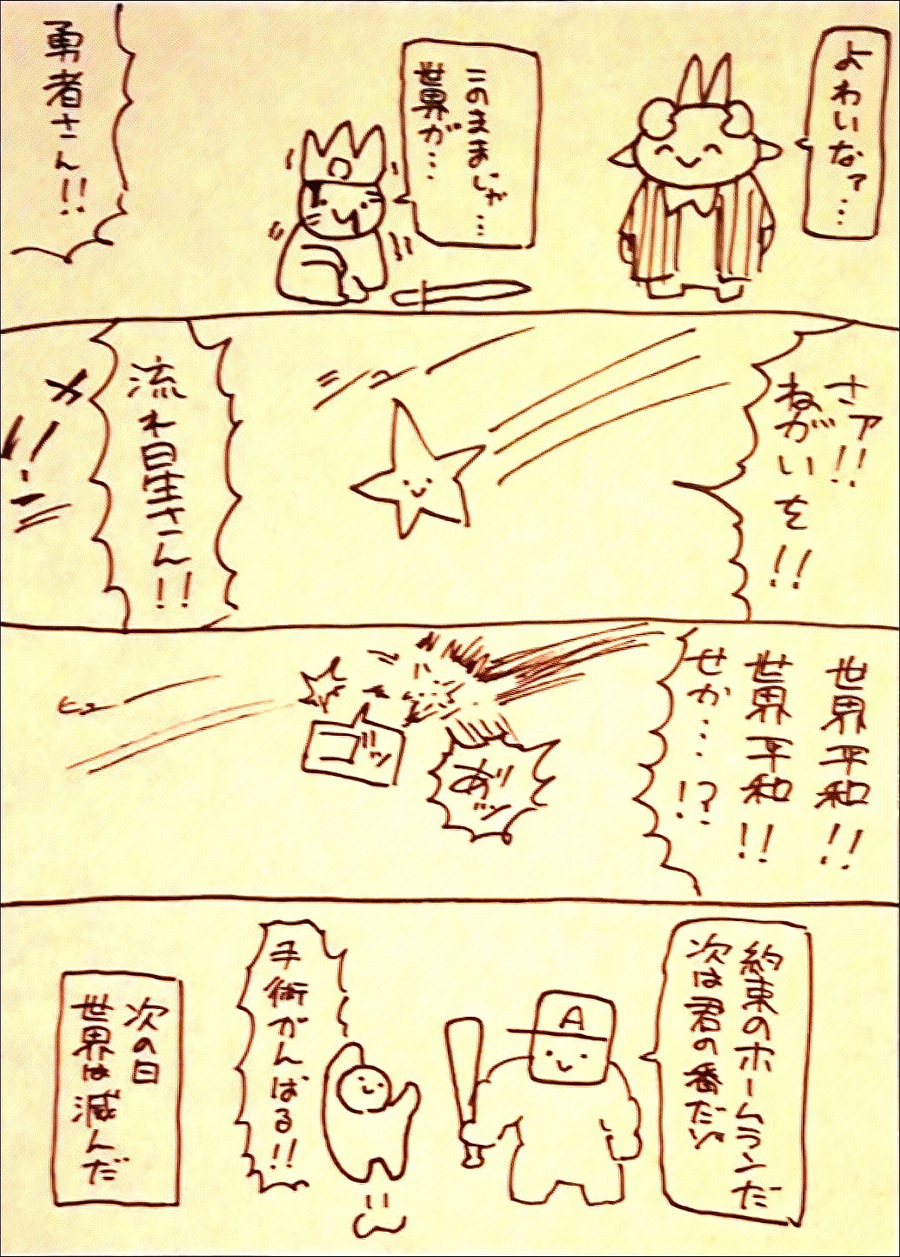 よわいなァ…
このままじゃ…
世界が…
勇者さん!!
さァ!!
ねがいを!!
流れ星さん!!
メ
!!
世界平和!!
世界平和!!
せか…!?
あッ
コツッ
ヒュー
約束のホームランだ
次は君の番だゾ
A
手術がんばる!!
次の日
世界は滅んだ